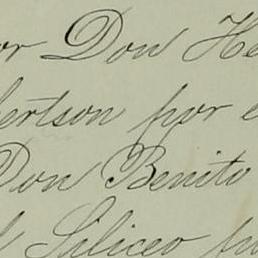 or Don He
ertson por e
Don Benito
Siliceo fu